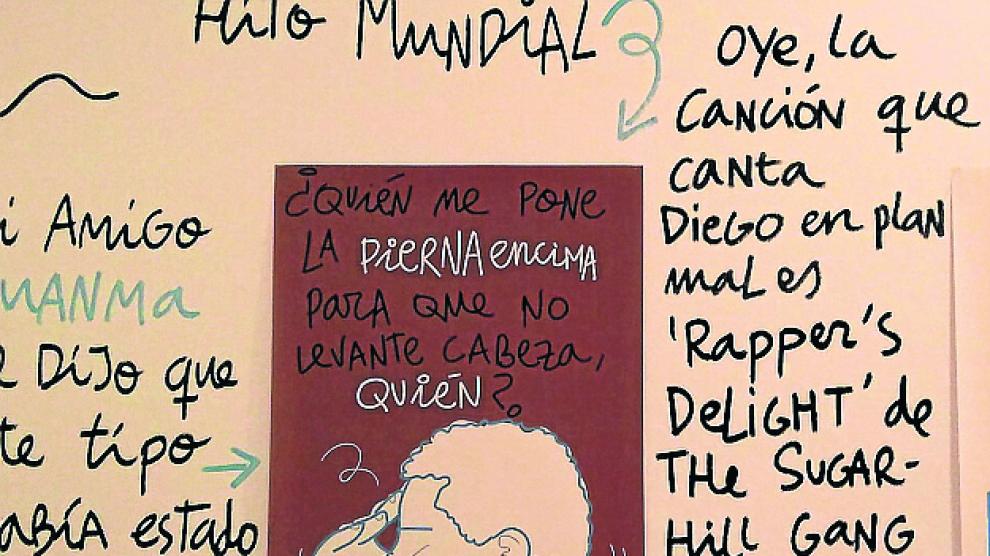 Hito MUNDIAL
i AMIGO
UANMA
DIJO que
te tipo
ABÍA estado
¿QUIÉN ME PONE
LA PIERNA encima
PARA QUE NO
LEVANTE CABEZA,
QUIÉN?
oye, la
CANCIÓN que
canta
DIEGO en plan
mal es
'Rapper's
DELIGHT' de
THe SUGAR-
HILL GANG